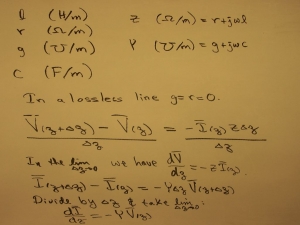 l (H/m) Z (Ω/m) = r+jωl
r (Ω/m)
g (℧/m) Y (℧/m) = g+jωc
C (F/m)
In a lossless line g=r=0.
V̄(z+Δz) − V̄(z) / Δz = −Ī(z) zΔz / Δz
In the lim Δz→0 we have dV̄/dz = −zĪ(z).
Ī(z+Δz) − Ī(z) = −YΔz V̄(z+Δz)
Divide by Δz & take lim Δz→0:
dĪ/dz = −Y V̄(z)